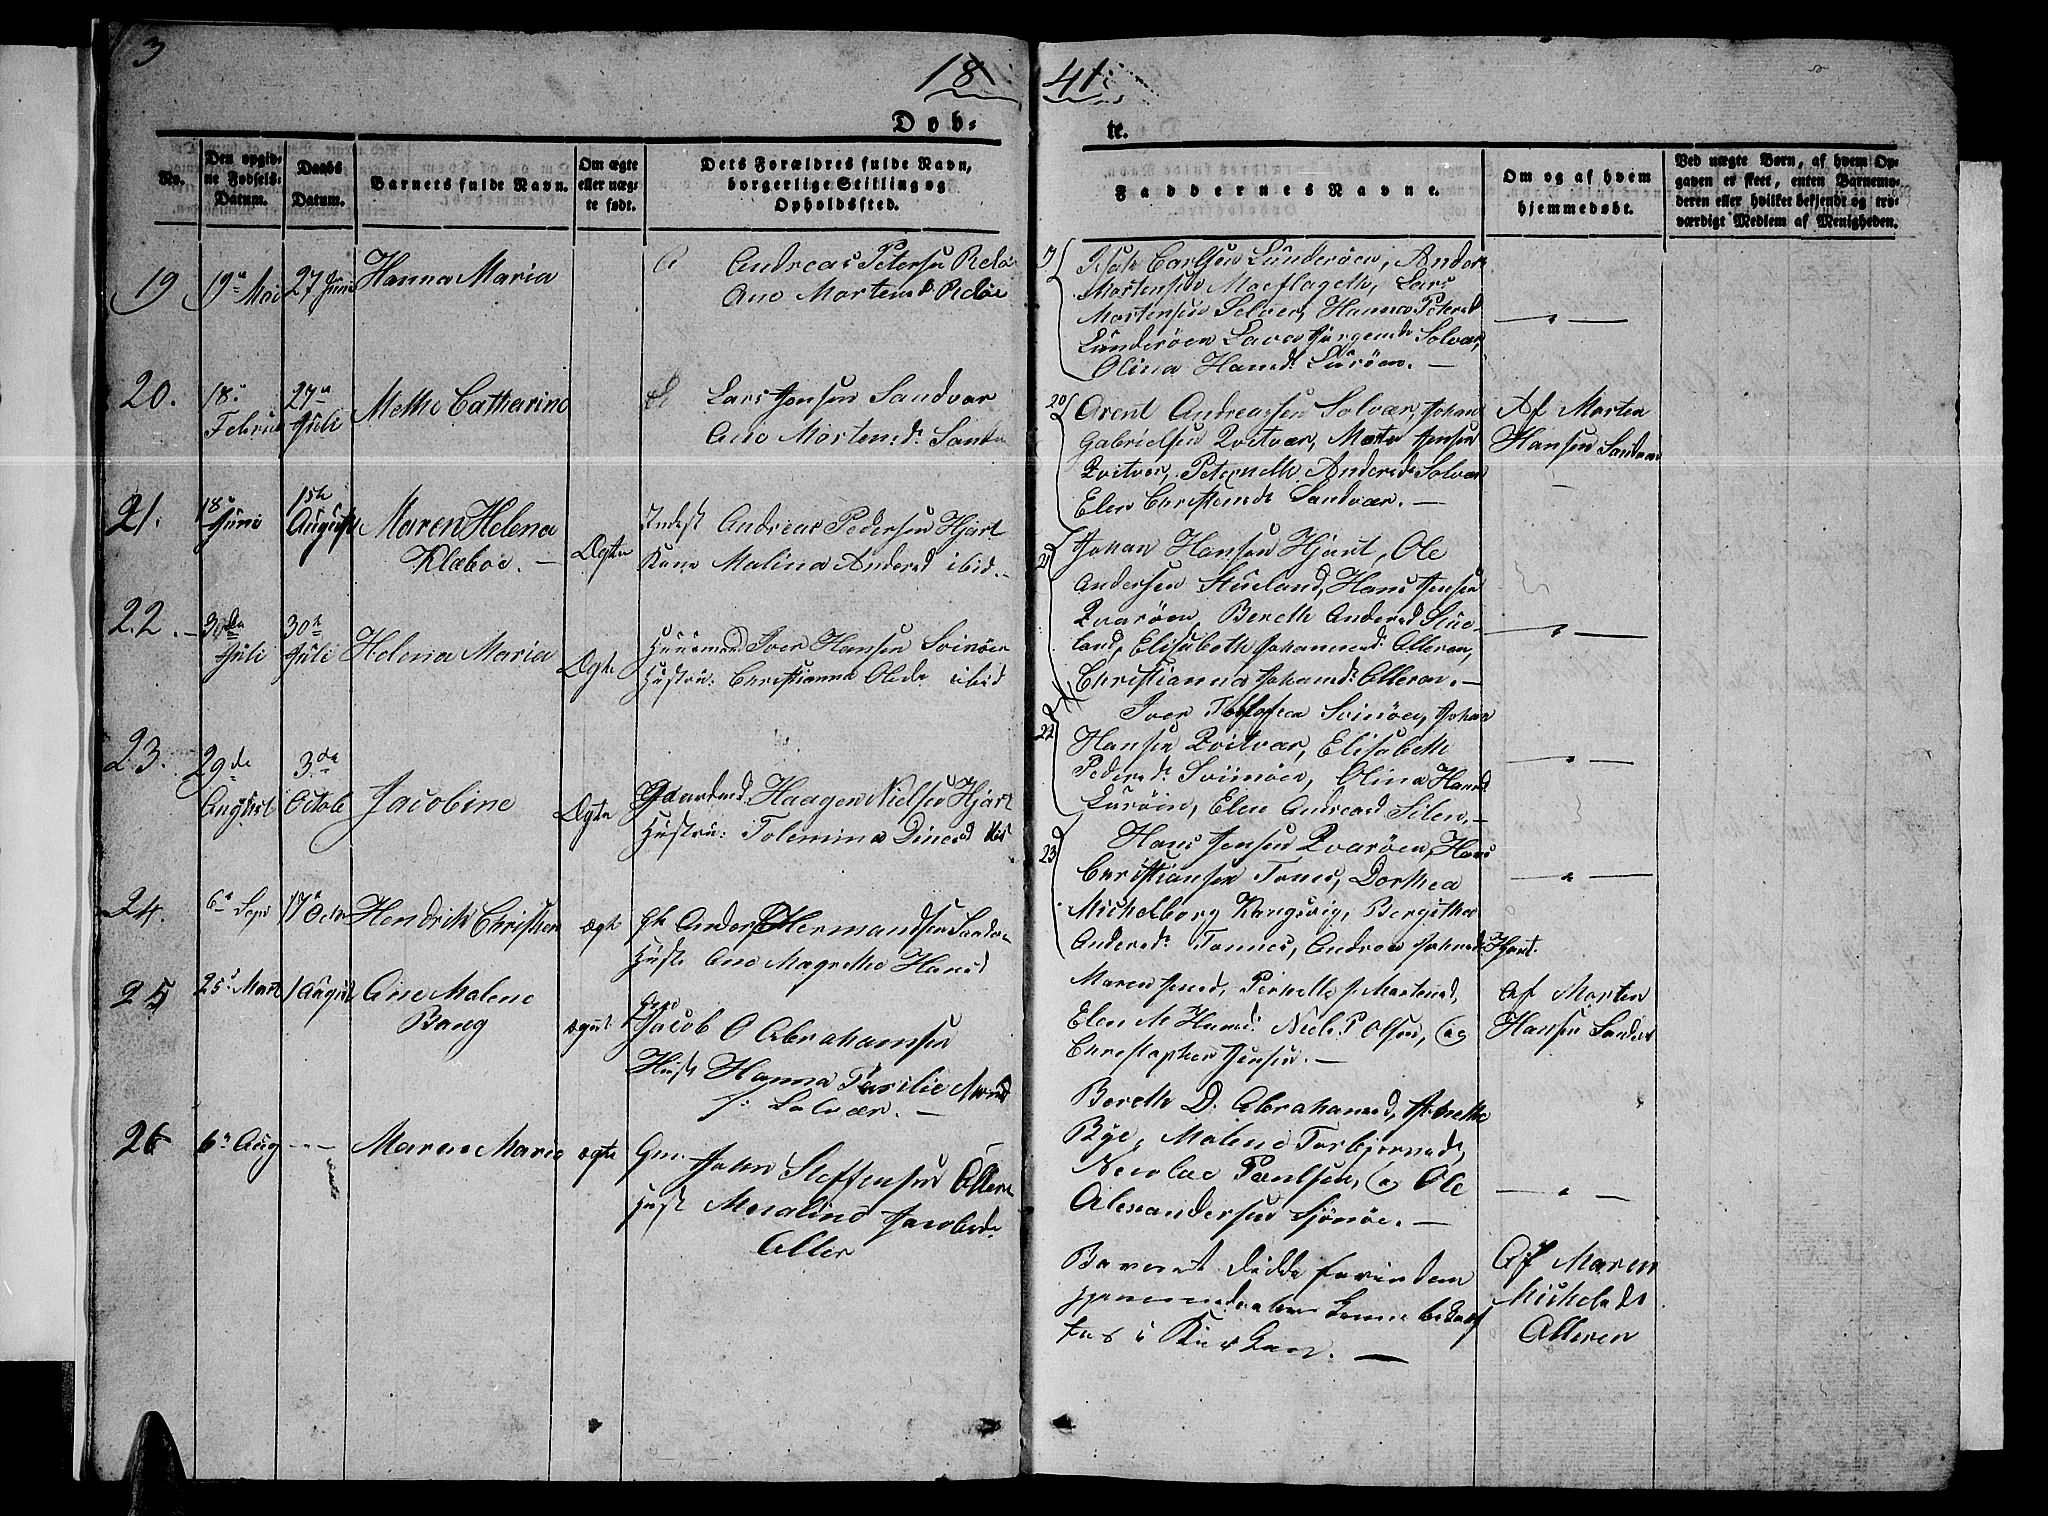 3
1841
Døb-
te.
No.
Den opgiv-
ne Fødsels-
Datum.
Daabs
Datum.
Barnets fulde Navn.
Om ægte
eller uæg-
te født.
Dets Forældres fulde Navn,
borgerlige Stilling og
Opholdssted.
Faddernes Navne.
Om og af hvem
hjemmedøbt.
Ved uægte Børn, af hvem Op-
gaven er skeet, enten Barnemo-
deren eller hvilket bekjendt og tro-
værdigt Medlem af Menigheden.
19
19 Mai
27 Juni
Hanna Maria
Andreas Petersen Reløe
Ane Mortensd Reløe
Carlsen Lünderøen, Anders
Mortensen Moeflageth, Lars
Mortensen Selvær, Hanna Petersd
Lünderøen Lava Jürgensd Solvær,
Olina Hansd. Lurøen. —
20.
18
Februar
27
Juli
Methe Catharine
Lars Jensen Sandvær
Ane Mortensd. Sandv
20
Arent Andreassen Solvær, Johan
Gabrielsen Qvitvær, Morten Jensen
Qvitvær, Peternelle Andersd Solvær
Elen Christensd Sandvær. —
Af Morten
Hansen Sandvær
21.
18
Juni
15de
August
Maren Helena
Klæboe. —
Ægte
Inderst Andreas Pedersen Hjart
Kone Malina Andersd ibid. —
21
Johan Hansen Hjart, Ole
Andersen Stueland, Hans Jensen
Qvarøen, Bereth Andersd Stue-
land, Elisabeth Johannesd Alleren,
Christianna Johansd. Alleren. —
22.
30de
Juli
30te
Juli
Helena Maria
Ægte
Huusmand Iver Hansen Svinøen
Hustru: Christianna Olsd. ibid
22
Iver Tollefsen Svinøen, Johan
Hansen Qvitvær, Elisabeth
Pedersd. Svinøen, Olina Hansd
Lurøen, Elen Andreasd Silen. —
23.
29de
August
3de
Octob
Jacobine
Ægte
Gaardmd Haagen Nielsen Hjart
Hustru: Tolemina Dinesd ibid
23
Hans Jensen Qvarøen, Hans
Christiansen Tonnes, Dorthea
Michelborg Kongsvig, Bergitha
Andersd. Tonnes, Andrea Johnsd Hjart.
24.
6 Sept
17 Octr
Hendrik Christian
ægte
Anders P Hermandsen Sandv
Hust. Ane Magrethe Hansd
Maren Jensd, Pernelle J. Mortensd,
Elen M Hansd. Niels P. Olsen, og
Christopher Jensen. —
Af Morten
Hansen Sandvær
25
25 Mart
1 August
Ane Malene
Bang
ægte
Jacob O Abrahamsen
Hust. Hanna Parsilie
Solvær. —
Bereth D. Abrahamsd,
Bye, Malene Torbjørnsd,
Nicolai Poulsen, og Ole
Alexandersen Sjonøe. —
26
6 Aug
Maren Marie
ægte
Gm. John Steffensen Alleren
Hust Meralina Jacobsd.
Aller
Barnet døde forinden
hjemmedaaben kunne bekræf
tes i Kirken. —
Af Maren
Michelsd
Alleren